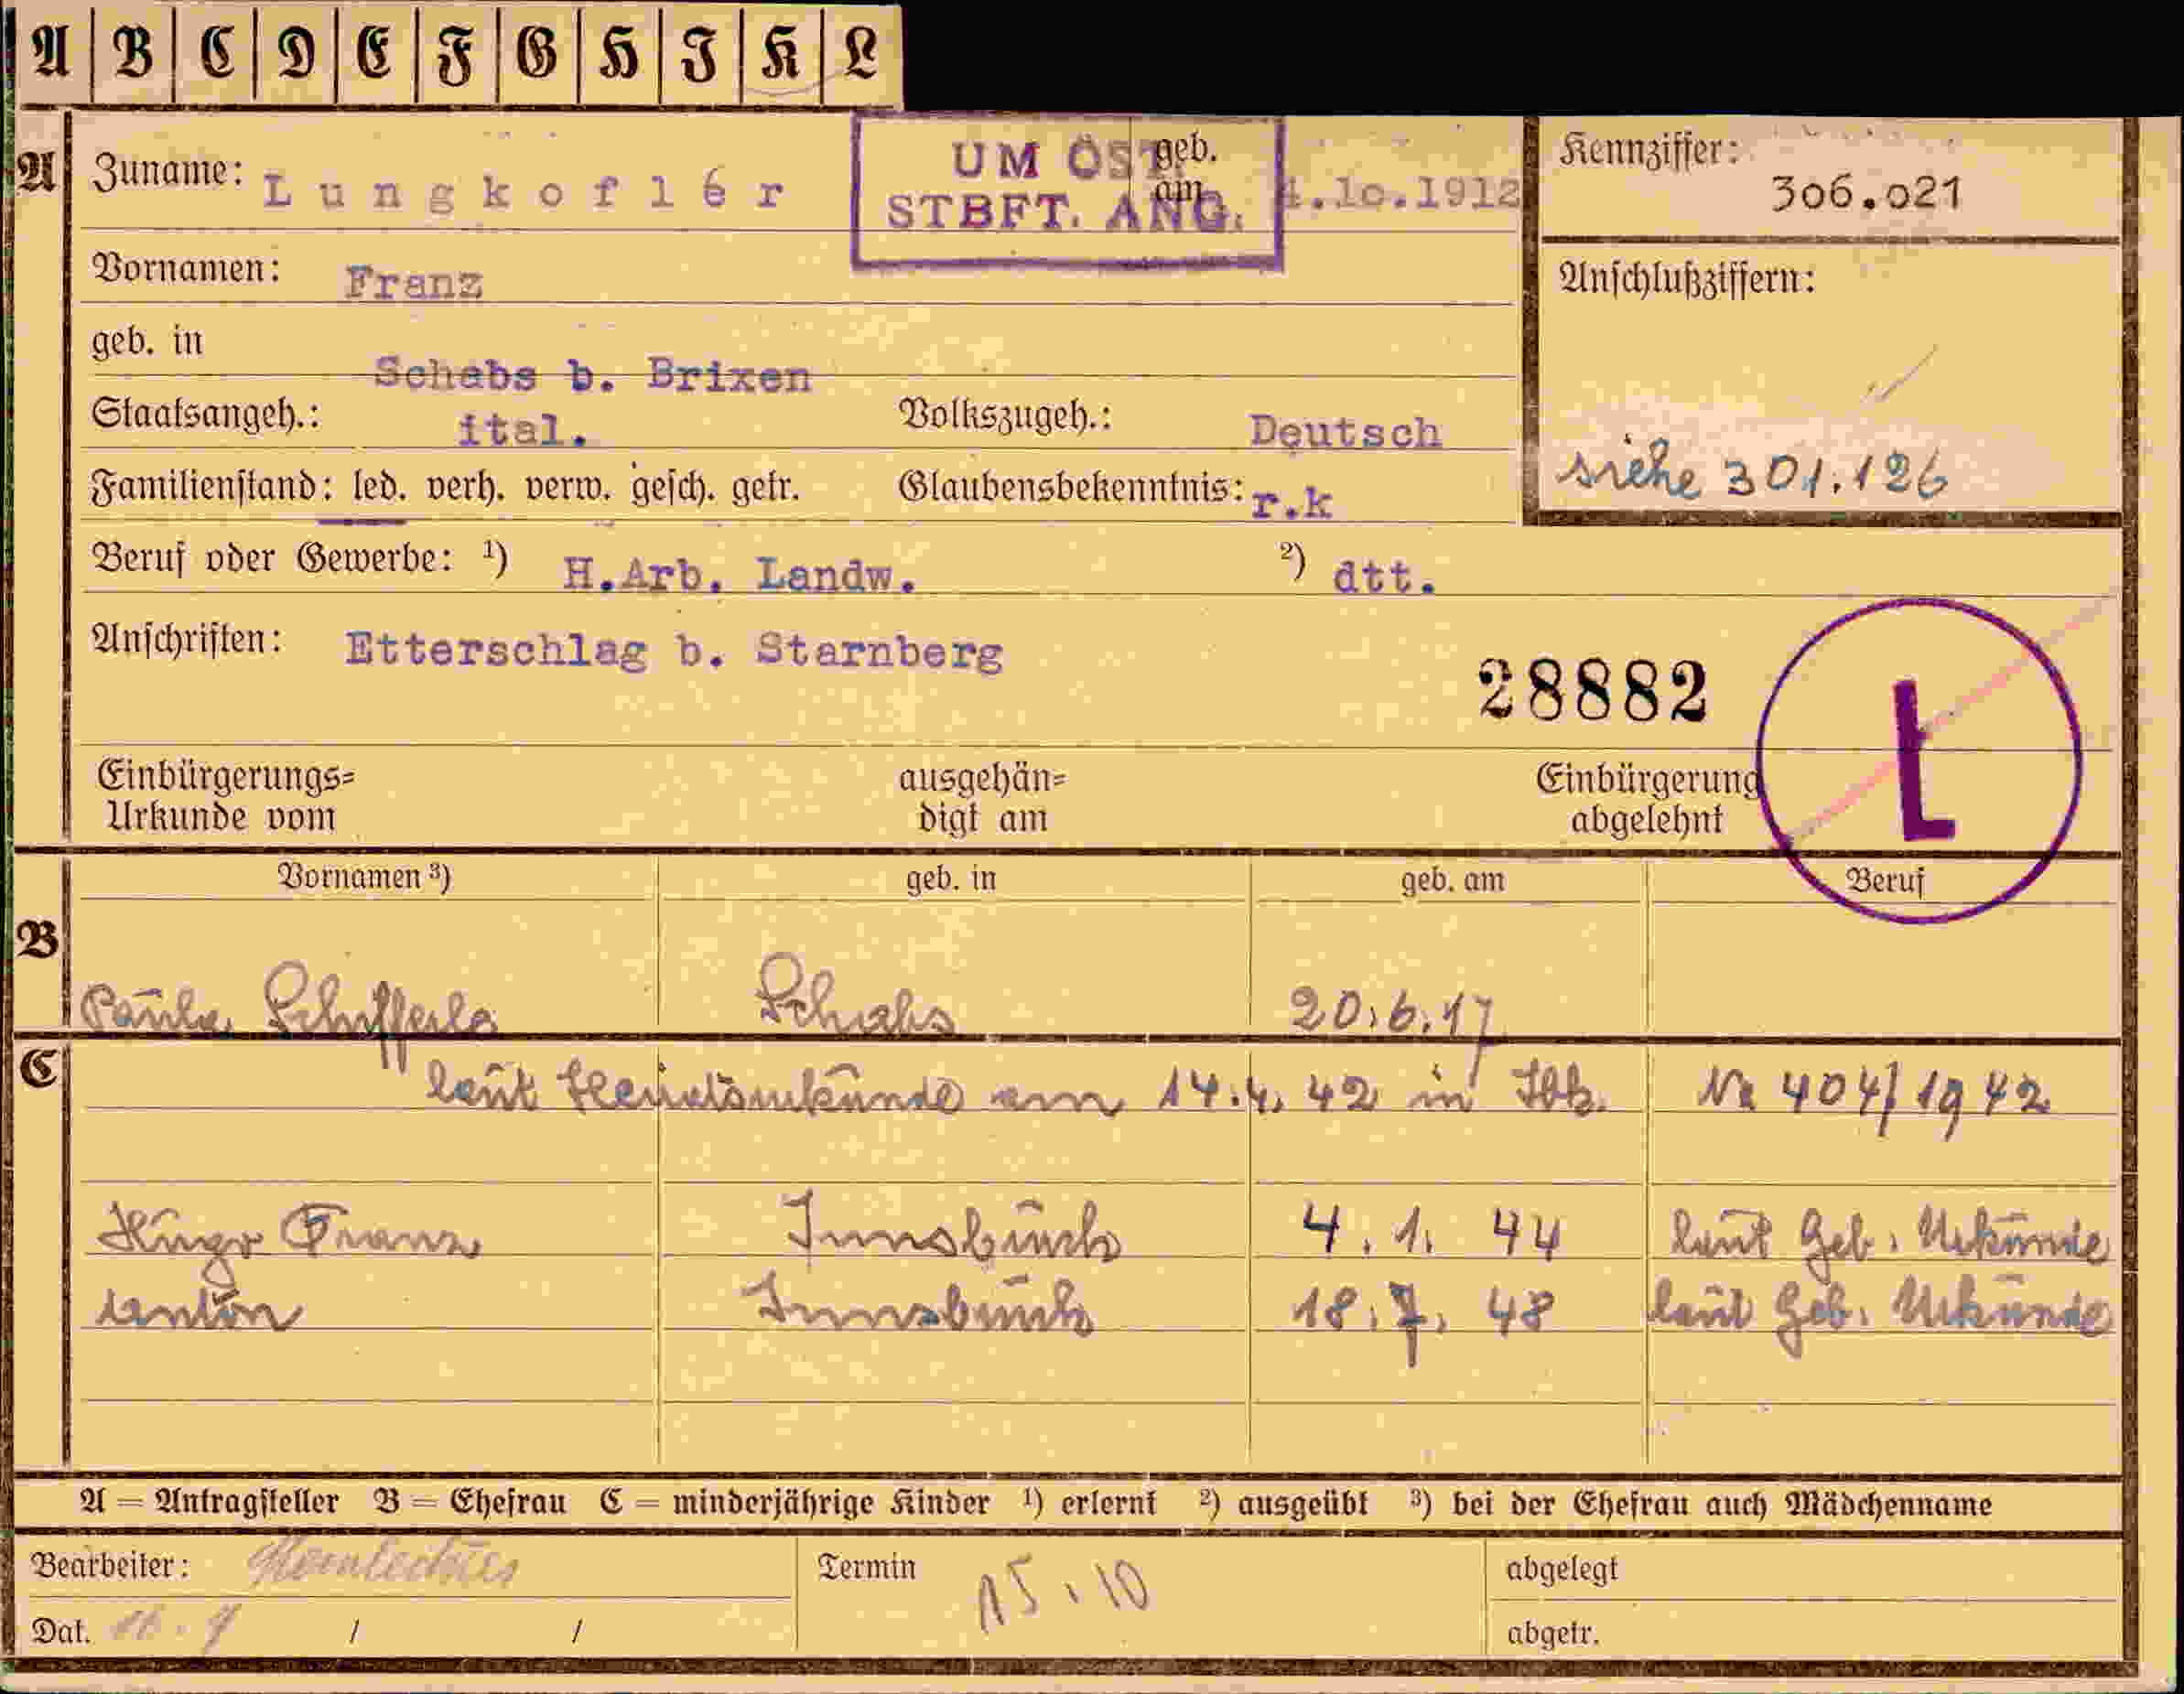 A B C D E F G H I K L
A
Zuname: Lungkofler
UM ÖST.
STBFT. ANG.
geb. am 4.10.1912
Kennziffer:
306.021
Vornamen: Franz
Anschlußziffern:
geb. in Schabs b. Brixen
Staatsangeh.: ital. Volkszugeh.: Deutsch
siehe 301.126
Familienstand: led. verh. verw. gesch. getr. Glaubensbekenntnis: r.k
Beruf oder Gewerbe: 1) H.Arb. Landw. 2) dtt.
Anschriften: Etterschlag b. Starnberg
28882
L
Einbürgerungs=
Urkunde vom
ausgehän=
digt am
Einbürgerung
abgelehnt
Vornamen 3) geb. in geb. am Beruf
B
Paula Schifferle Schabs 20.6.17
C
laut Heiratsurkunde am 14.4.42 in Ibk. Nr 404/1942
Hugo Franz Innsbruck 4.1.44 laut Geb. Urkunde
Anton Innsbruck 18.7.48 laut Geb. Urkunde
A = Antragsteller B = Ehefrau C = minderjährige Kinder 1) erlernt 2) ausgeübt 3) bei der Ehefrau auch Mädchenname
Bearbeiter:
Termin 15.10
abgelegt
Dat. / /
abgetr.